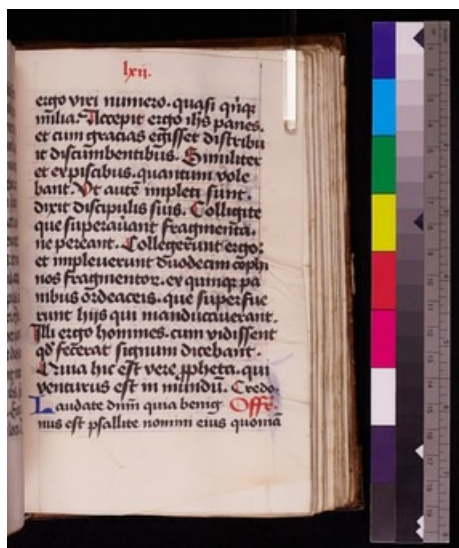 lxii.
ergo viri numero. quasi qn̄qꝫ
milia. Accepit ergo ihs panes.
et cum gracias egisset distribu
it discumbentibus. Similiter
et ex piscibus. quantum vole
bant. Ut autē impleti sunt.
dixit discipulis suis. Colligite
que superauant fragmenta.
ne pereant. Collegerunt ergo.
et impleuerunt duodecim cophi
nos fragmentor. ex quinqꝫ pa
nibus ordeaceis. que superfue
runt hijs qui manducauerant.
Illi ergo hommes. cum vidissent
qd̄ fecerat signum dicebant.
Quia hic est vere ꝓpheta. qui
venturus est in mundū. Credo.
Laudate dn̄m quia benig Offr̄.
nus est psallite nomini eius quoniā